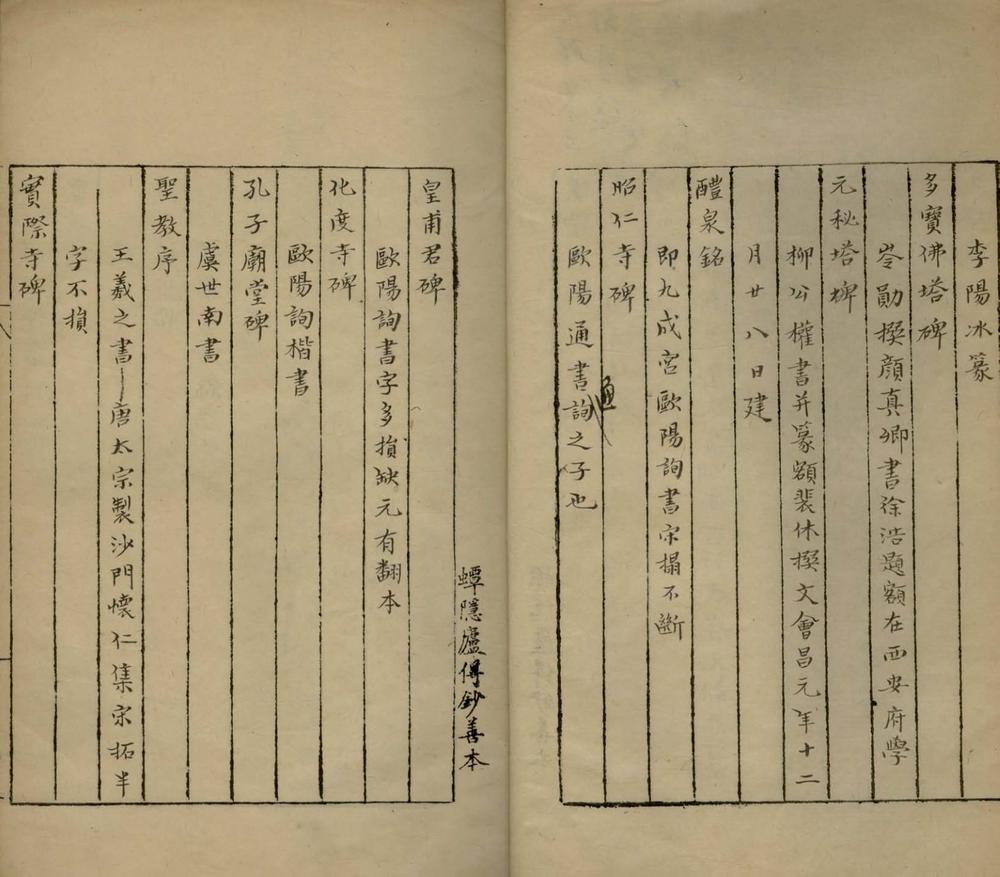 李陽冰篆
多寶佛塔碑
岑勛撰顔真卿書徐浩題額在西安府學
元秘塔碑
柳公權書并篆額裴休撰文會昌元年十二
月廿八日建
醴泉銘
即九成宮歐陽詢書宋搨不斷
昭仁寺碑
歐陽通書詢之子也
通
蟫隱廬傳鈔善本
皇甫君碑
歐陽詢書字多損缺元有翻本
化度寺碑
歐陽詢楷書
孔子廟堂碑
虞世南書
聖教序
王羲之書唐太宗製沙門懷仁集宋拓半
字不損
實際寺碑